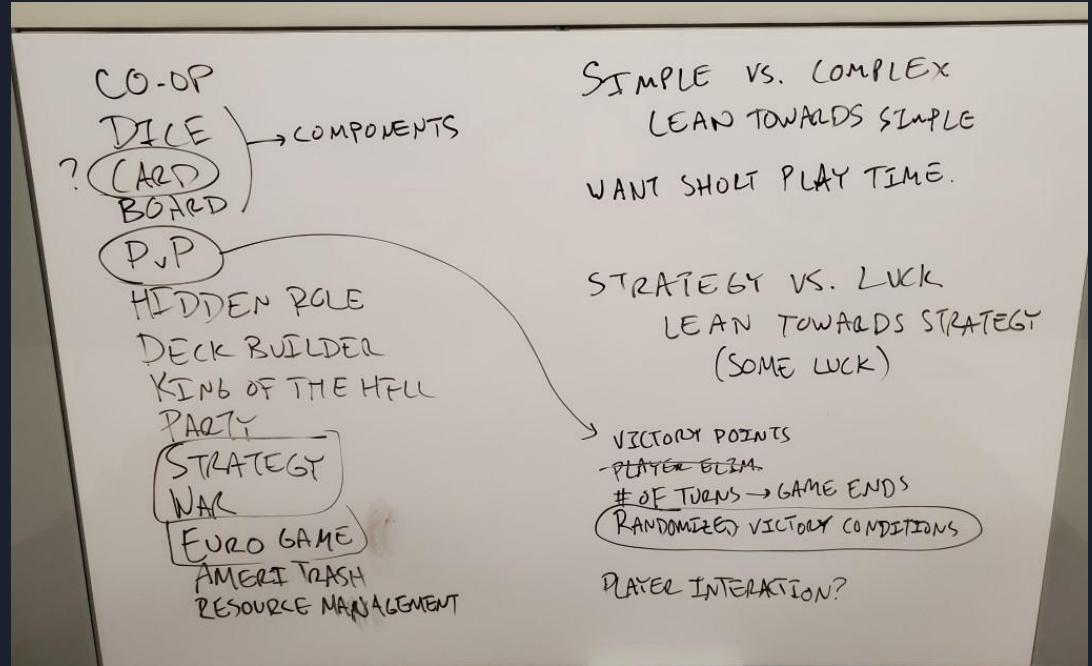 CO-OP
DICE
→ COMPONENTS
? CARD
BOARD
PvP
HIDDEN ROLE
DECK BUILDER
KING OF THE HILL
PARTY
STRATEGY
WAR
EURO GAME
AMERI TRASH
RESOURCE MANAGEMENT
SIMPLE VS. COMPLEX
LEAN TOWARDS SIMPLE
WANT SHORT PLAY TIME.
STRATEGY VS. LUCK
LEAN TOWARDS STRATEGY
(SOME LUCK)
VICTORY POINTS
PLAYER ELIM.
# OF TURNS → GAME ENDS
RANDOMIZED VICTORY CONDITIONS
PLAYER INTERACTION?